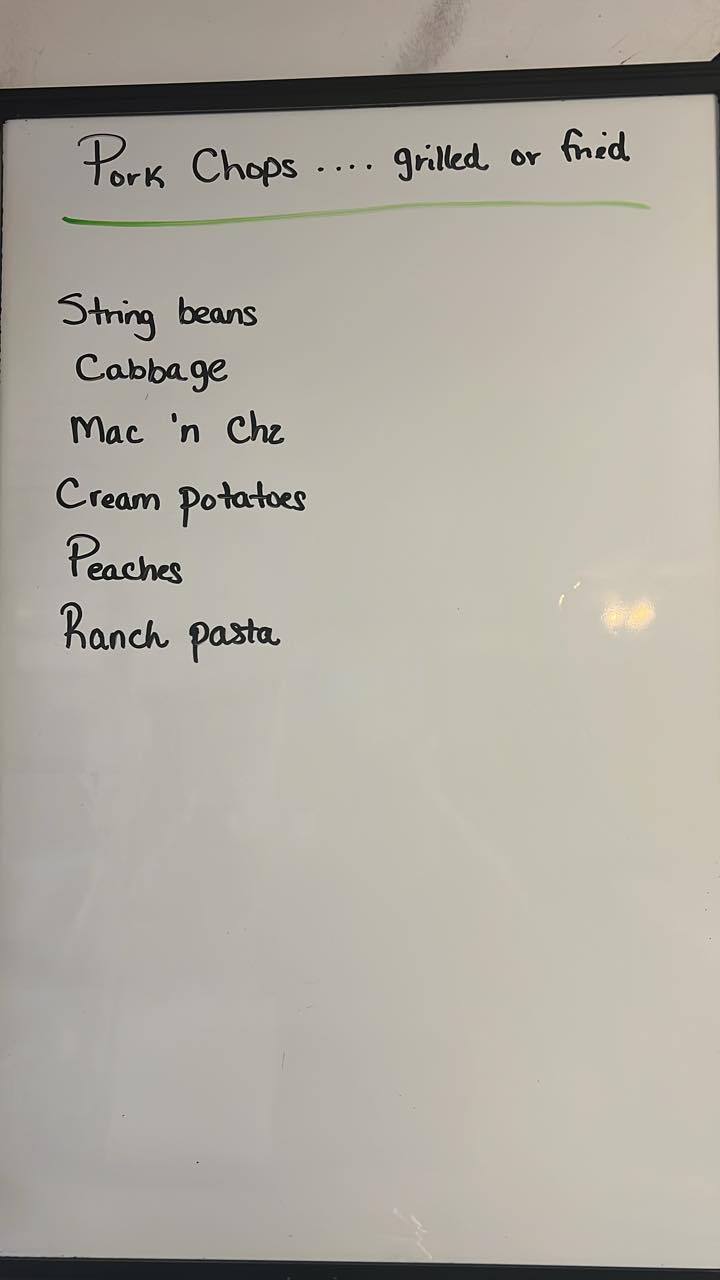 Pork Chops .... grilled or fried
String beans
Cabbage
Mac 'n Chz
Cream potatoes
Peaches
Ranch pasta